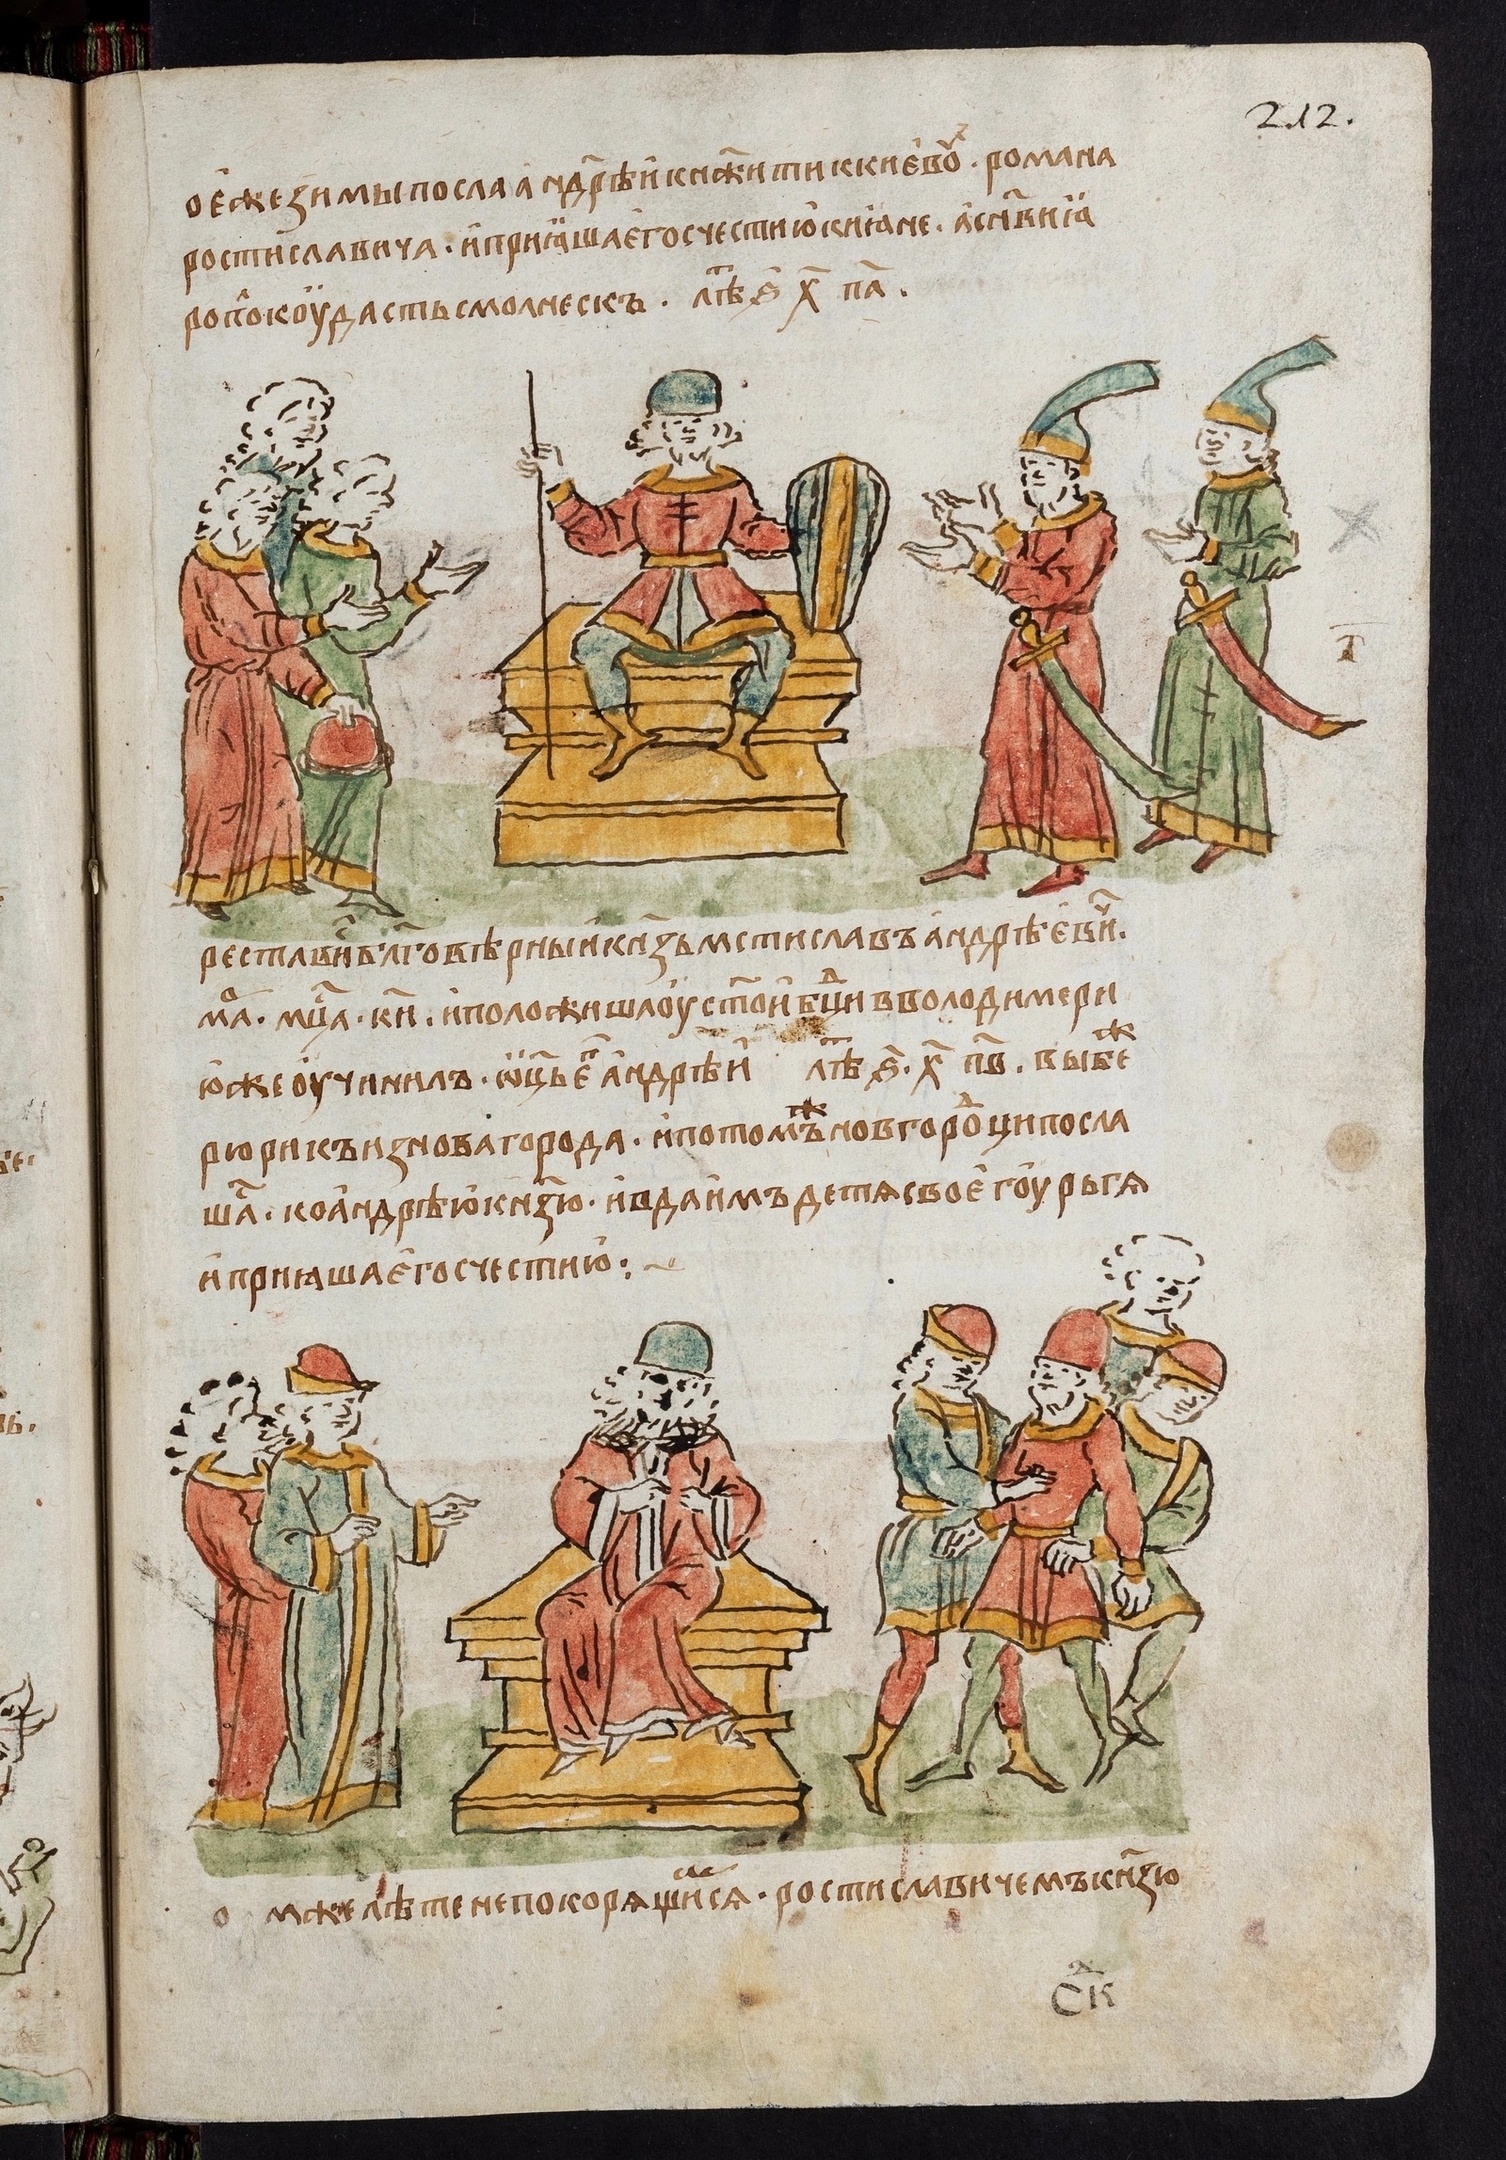 212.
оеже зимы посла андрѣи кнѧжити к киево҃. романа
ростиславича. и приꙗша его с честию киꙗне. а сн҃ви ꙗ
ропокоу дасть смолнескъ. лт҃ѣ ѕ҃ х҃ па҃.
т҃
реставиⷭ҇ бл҃говѣрныи кн҃зь мстиславъ андрѣеви.
ма. мц҃а. ки҃. и положиша оу ст҃ои бц҃и в володимери
юже оучинилъ. ѿць е҃ андрѣи лт҃ѣ ѕ҃. х҃ пв҃. выбеж
рюрикъ из нова города. и потомъж новгородци посла
ша. ко андрѣю кн҃зю. и вда имъ детѧ свое гоурьгѧ
и приꙗша его с честию:~
о мже лѣте не покорѧшисѧ. ростиславичемъ кн҃зю
ск҃а